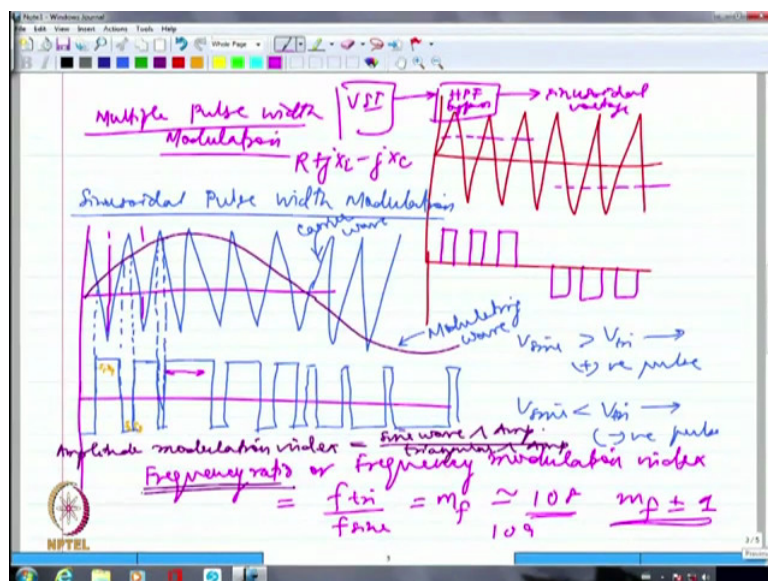 Note1 - Windows Journal
File Edit View Insert Actions Tools Help
Whole Page
B I
Multiple Pulse width
Modulation
VSI
HPF
bypass
sinusoidal
voltage
R+jXL-jXC
Sinusoidal Pulse Width Modulation
carrier
wave
Modulating
wave
Vsine > Vtri →
(+)ve pulse
Vsine < Vtri →
(-)ve pulse
Amplitude modulation index = sine wave Amp.
triangular Amp.
Frequency ratio or Frequency modulation index
= f tri / f sine = mf ≃ 108 mf ± 1
109
NPTEL
3/5